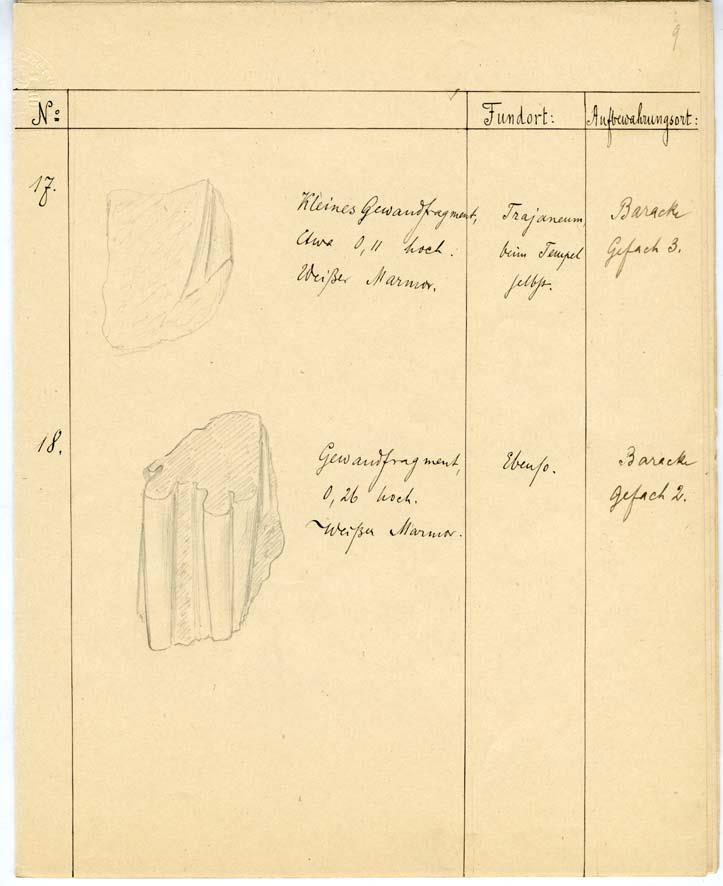 9
No: Fundort: Aufbewahrungsort:
17.
Kleines Gewandfragment,
etwa 0,11 hoch.
Weißer Marmor.
Trajaneum,
beim Tempel
selbst.
Baracke
Gefach 3.
18.
Gewandfragment,
0,26 hoch.
Weißer Marmor.
Ebenso.
Baracke
Gefach 2.